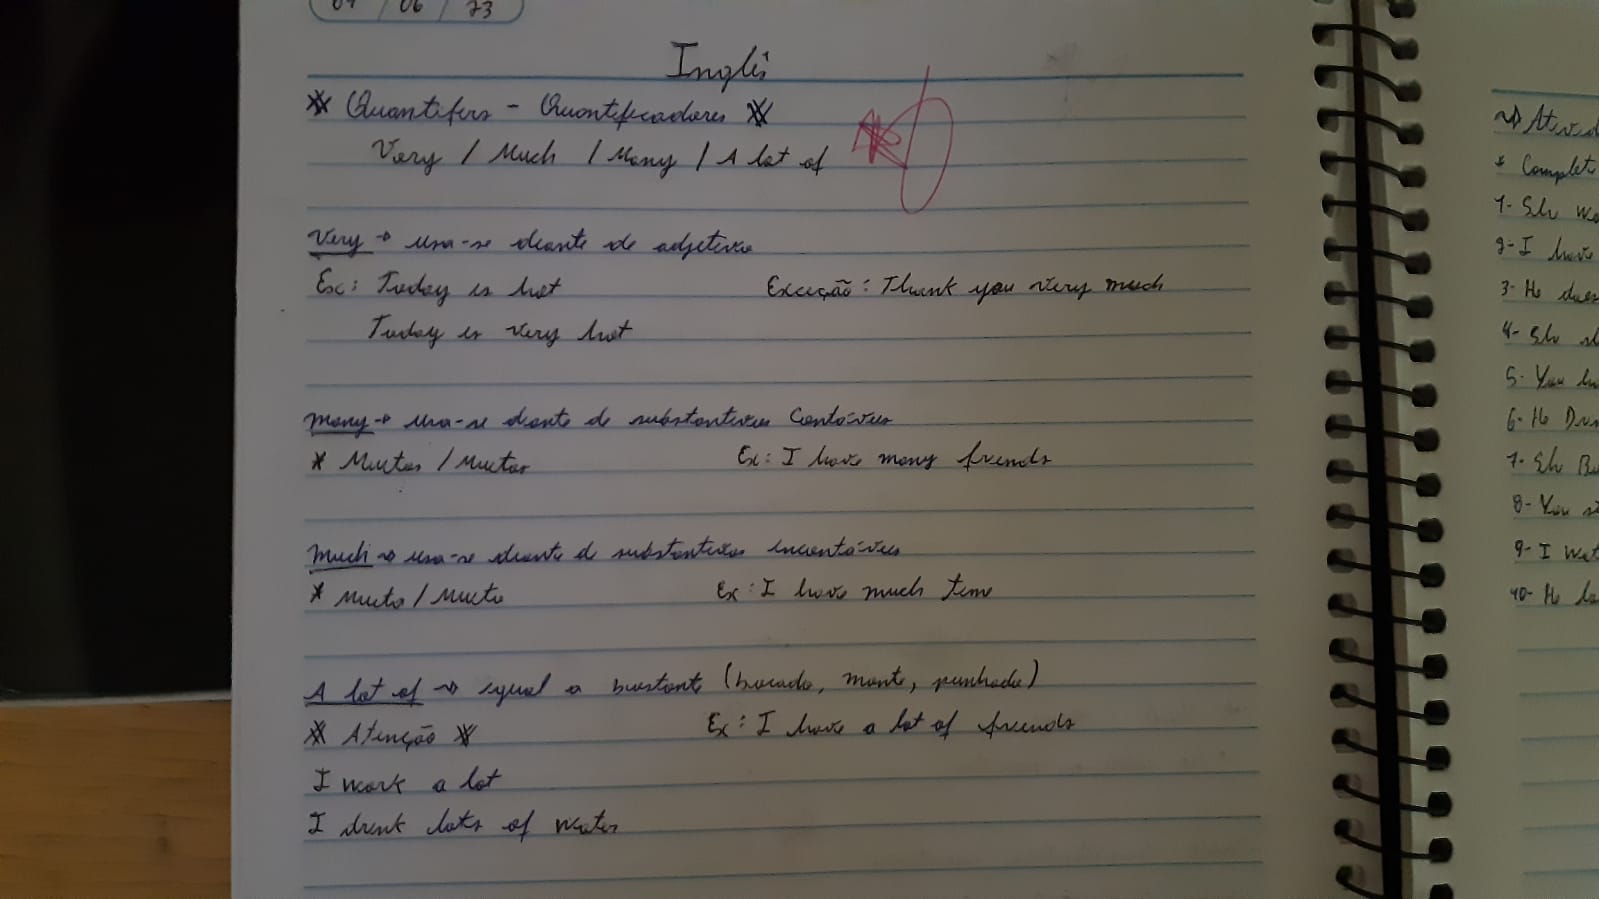 Inglês
** Quantifers - Quantificadores **
Very / Much / Many / A lot of
Very → usa-se diante de adjetivo
Ex: Today is hot
Exceção: Thank you very much
Today is very hot
Many → usa-se diante de substantivos Contáveis
* Muitos / Muitas
Ex: I have many friends
Much → usa-se diante de substantivos incontáveis
* Muito / Muita
Ex: I have much time
A lot of → igual a bastante (bocado, monte, punhado)
** Atenção **
Ex: I have a lot of friends
I work a lot
I drink lots of water
* Complete
2- I have
5- You
6- He
8- You
9- I
10- He